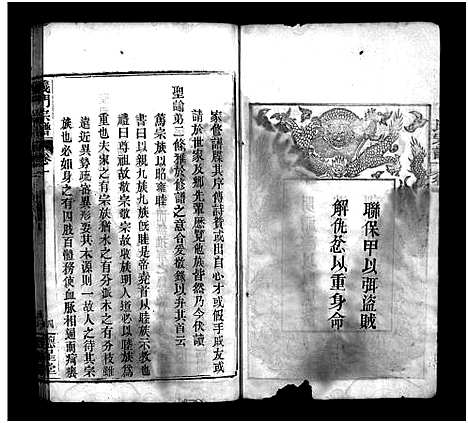 聯保甲以弭盜賊
解仇忿以重身命
家修譜牒其序傳詩賛或出自心才或假手戚友或
請於世家及鄉先輩歷覽他族皆然乃今伏讀
聖諭第二條雅於修譜之意合爰敬錄以弁其首云
萬宗族以昭雍睦
書曰以親九族九族既睦是帝堯首以睦族示教也
禮曰尊祖故敬宗敬宗故收族明人道必以睦族為
重也夫家之有宗族猶水之有分派木之有分枝雖
遠近異勢疏密異形要其本源則一故人之待其宗
族也必如身之有四肢百體務使血脉相通而痾癢
義門宗譜
卷一